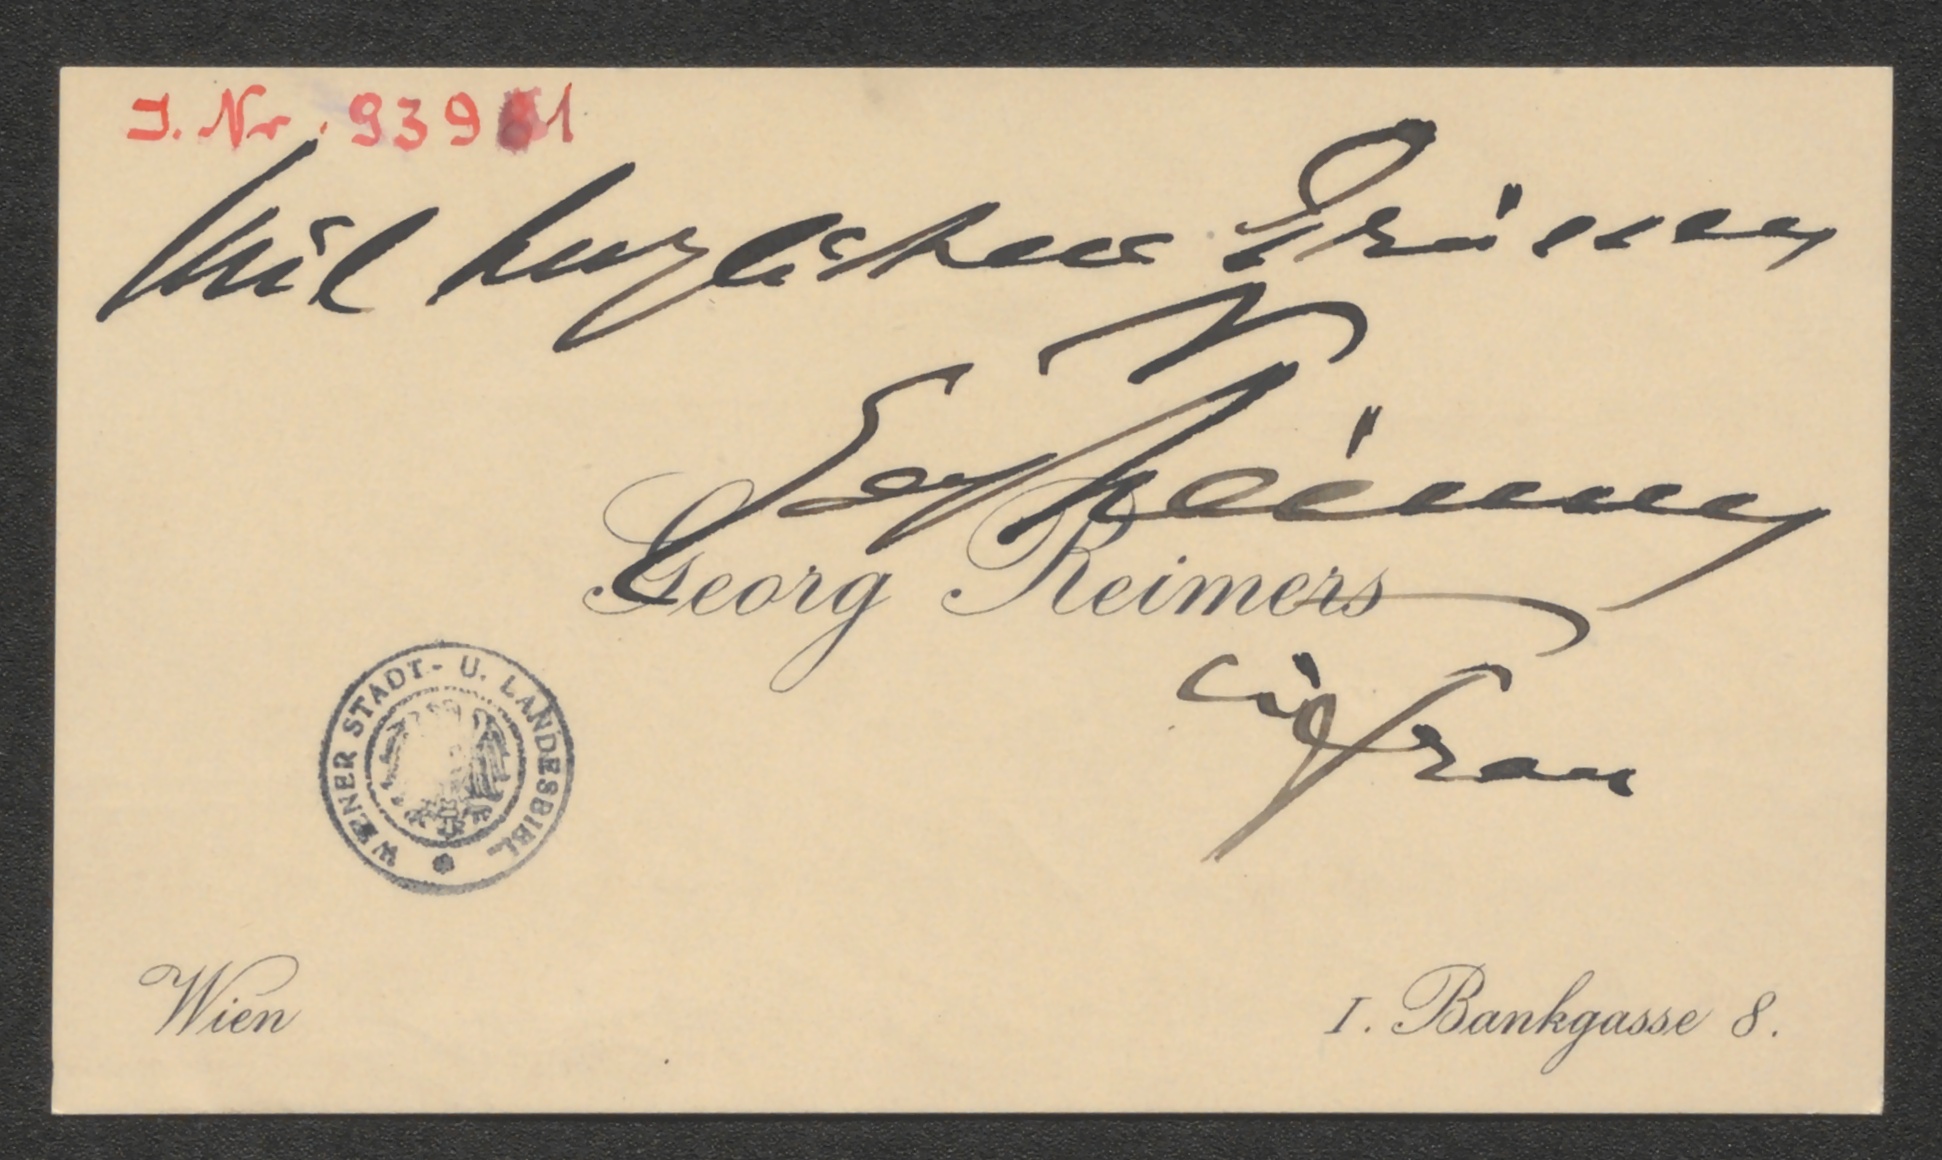 I. Nr. 93981
Mit herzlichen Grüssen
Georg Reimers
u Frau
WIENER STADT- U. LANDESBIBL.
Wien
I. Bankgasse 8.